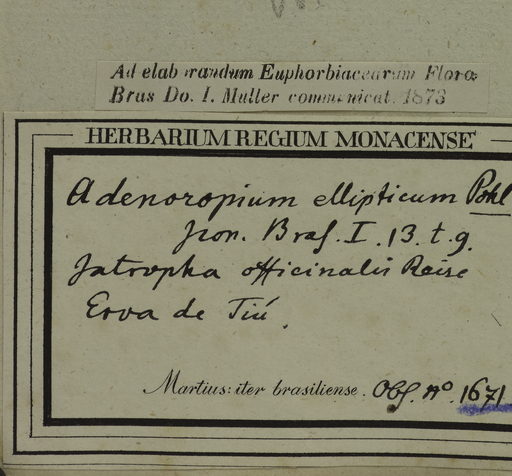 Ad elaborandum Euphorbiacearum Florae
Bras Do. I. Muller communicat. 1873
HERBARIUM REGIUM MONACENSE
Adenoropium ellipticum Pohl
Bras. I. 13. t. 9.
Jatropha officinalis Reise
Erva de Tiú.
Martius: iter brasiliense. Obs. No. 1671